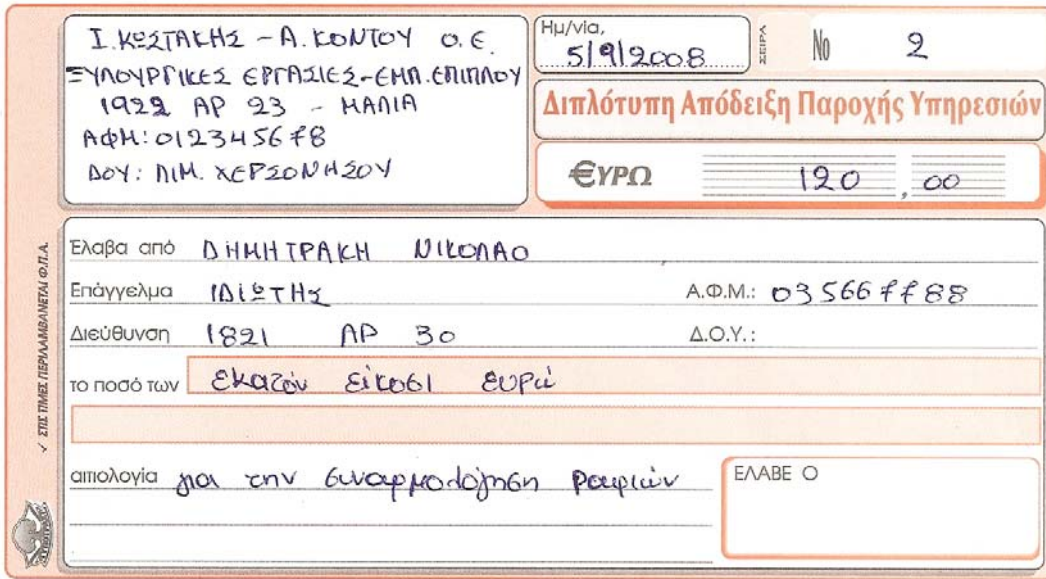 Ι. ΚΩΣΤΑΚΗΣ - Α. ΚΟΝΤΟΥ Ο.Ε.
ΞΥΛΟΥΡΓΙΚΕΣ ΕΡΓΑΣΙΕΣ-ΕΜΠ.ΕΠΙΠΛΟΥ
1922 ΑΡ 23 - ΜΑΛΙΑ
ΑΦΜ: 012345678
ΔΟΥ: ΛΙΜ. ΧΕΡΣΟΝΗΣΟΥ
Ημ/νία, 5/9/2008
ΣΕΙΡΑ No 2
Διπλότυπη Απόδειξη Παροχής Υπηρεσιών
€ΥΡΩ 120,00
Έλαβα από ΔΗΜΗΤΡΑΚΗ ΝΙΚΟΛΑΟ
Επάγγελμα ΙΔΙΩΤΗΣ Α.Φ.Μ.: 035667788
Διεύθυνση 1821 ΑΡ 30 Δ.Ο.Υ.:
το ποσό των εκατόν είκοσι ευρώ
αιτιολογία για την συναρμολόγηση ραφιών
ΕΛΑΒΕ Ο
✓ ΣΤΙΣ ΤΙΜΕΣ ΠΕΡΙΛΑΜΒΑΝΕΤΑΙ Φ.Π.Α.